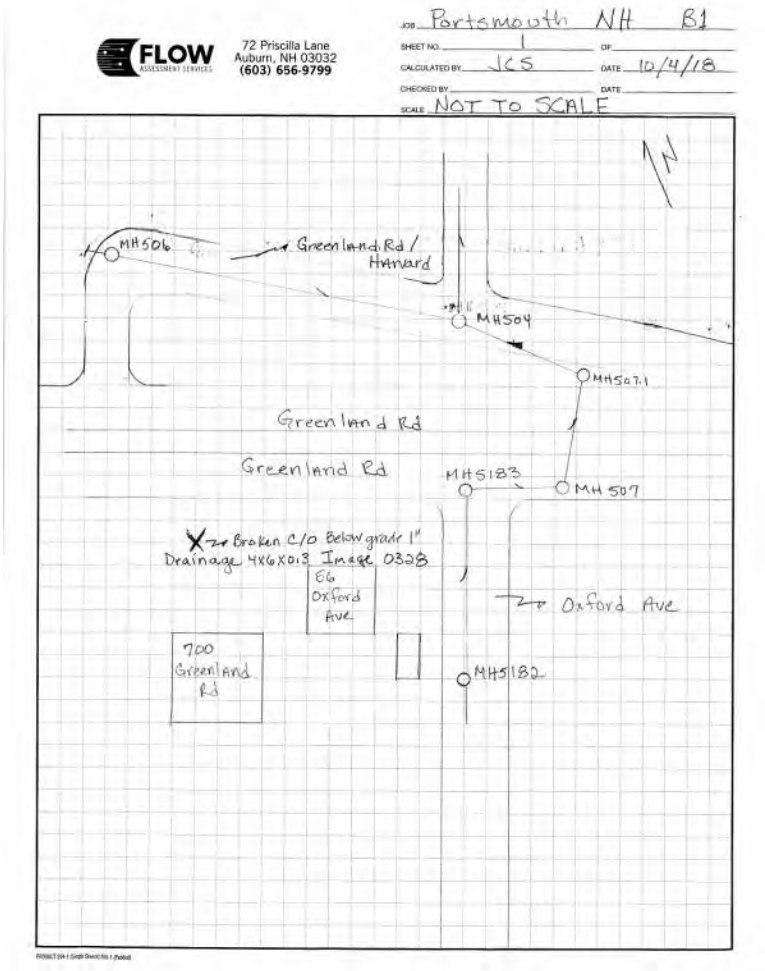 FLOW
ASSESSMENT SERVICES
72 Priscilla Lane
Auburn, NH 03032
(603) 656-9799
JOB Portsmouth NH B1
SHEET NO. 1 OF
CALCULATED BY JCS DATE 10/4/18
CHECKED BY DATE
SCALE NOT TO SCALE
N
MH506
Greenland Rd /
Harvard
MH504
MH507.1
Greenland Rd
Greenland Rd
MH5183
MH507
X Broken C/O Below grade 1"
Drainage 4X6X0.3 Image 0328
56
Oxford
Ave
Oxford Ave
700
Greenland
Rd
MH5182